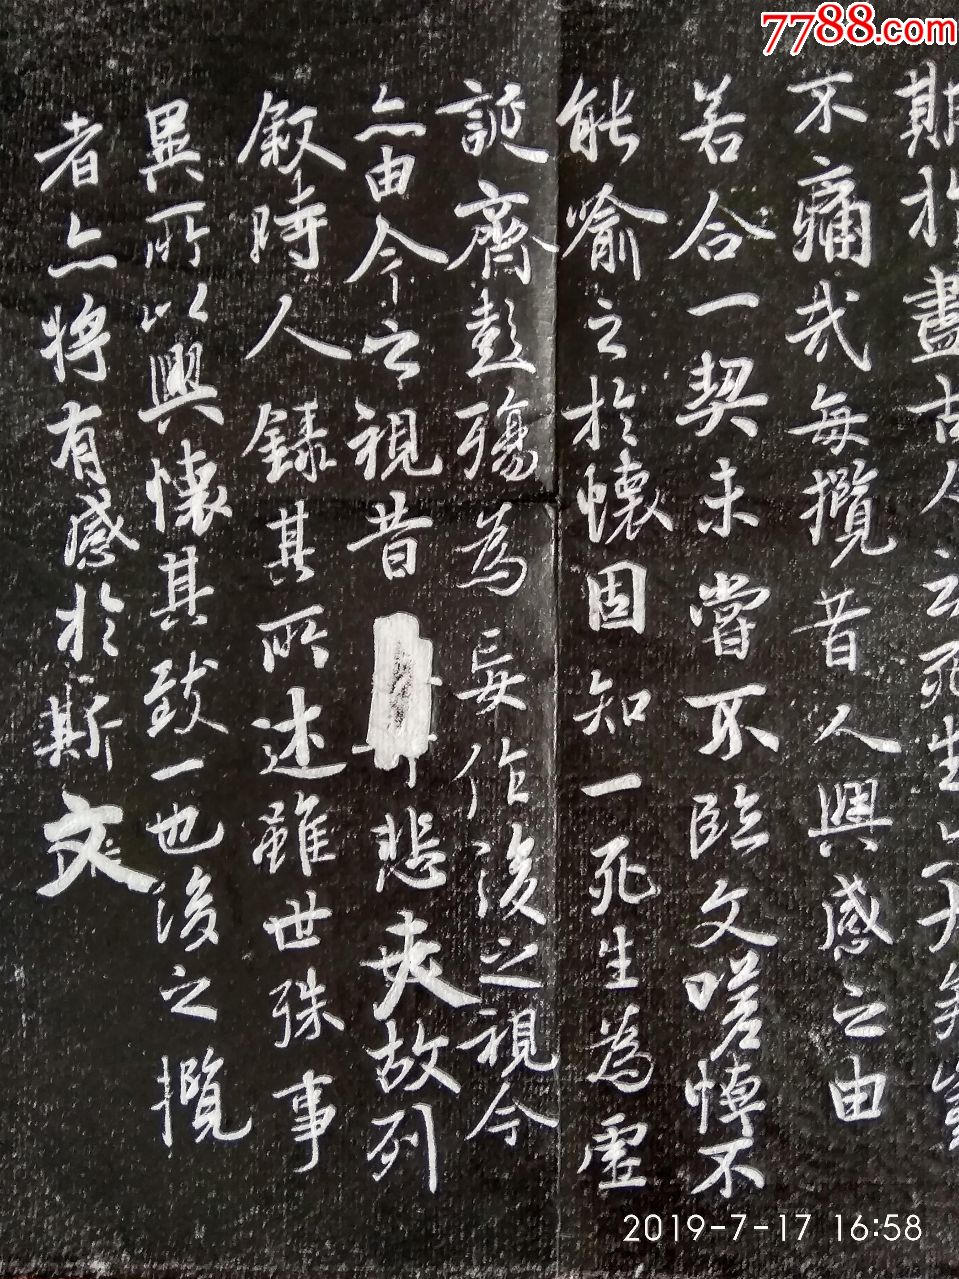 7788.com
期於盡古人云死生亦大矣豈
不痛哉每攬昔人興感之由
若合一契未嘗不臨文嗟悼不
能喻之於懷固知一死生為虛
誕齊彭殤為妄作後之視今
亦由今之視昔悲夫故列
敘時人錄其所述雖世殊事
異所以興懷其致一也後之攬
者亦將有感於斯文
2019-7-17 16:58